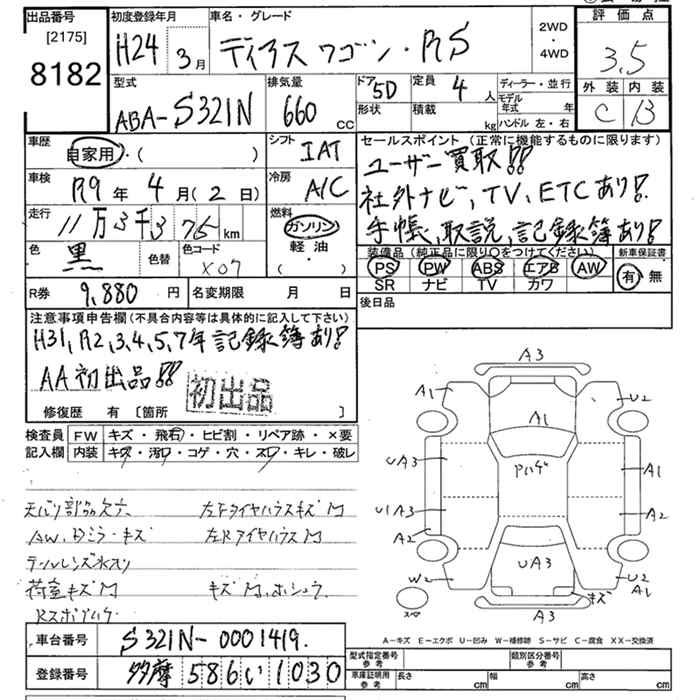 出品番号 [2175] 8182
初度登録年月 H24 3月
車名・グレード ディアス ワゴン・RS
2WD ・ 4WD
評価点 3.5
外装 内装
C B
型式 ABA-S321N
排気量 660 CC
ドア 5D 定員 4人
形状 積載 kg
ディーラー・並行
モデル年式 年
ハンドル 左・右
車歴 自家用・( )
シフト IAT
車検 R9年 4月 (2日)
冷房 A/C
走行 11万3千375km
燃料 ガソリン・軽油・( )
色 黒 色替 色コード X07
セールスポイント(正常に機能するものに限ります)
ユーザー買取!!
社外ナビ、TV、ETCあり!
手帳、取説、記録簿あり!
装備品(純正品に限り○をつけてください) 新車保証書
PS PW ABS エアB AW 有・無
SR ナビ TV カワ
R券 9,880円 名変期限 月 日
後日品
注意事項申告欄(不具合内容等は具体的に記入して下さい)
H31,R2,3,4,5,7年記録簿あり!
AA初出品!! 初出品
修復歴 有 〔箇所 〕
検査員記入欄 FW キズ・飛石・ヒビ割・リペア跡・×要
内装 キズ・汚れ・コゲ・穴・スレ・キレ・破レ
AW、ミラーキズ
テールレンズ
荷室キズ
A3
A1 U2
A1
UA3 Pハゲ A1
U1A3 A2
A2
UA3
W U2 A1
キズ
A3
A-キズ E-エクボ U-凹み W-補修跡 S-サビ C-腐食 XX-交換済
車台番号 S321N-0001419.
登録番号 多摩 586 い 1030
型式指定番号 参考 類別区分番号 参考
車庫証明用 参考 長さ cm 幅 cm 高さ cm